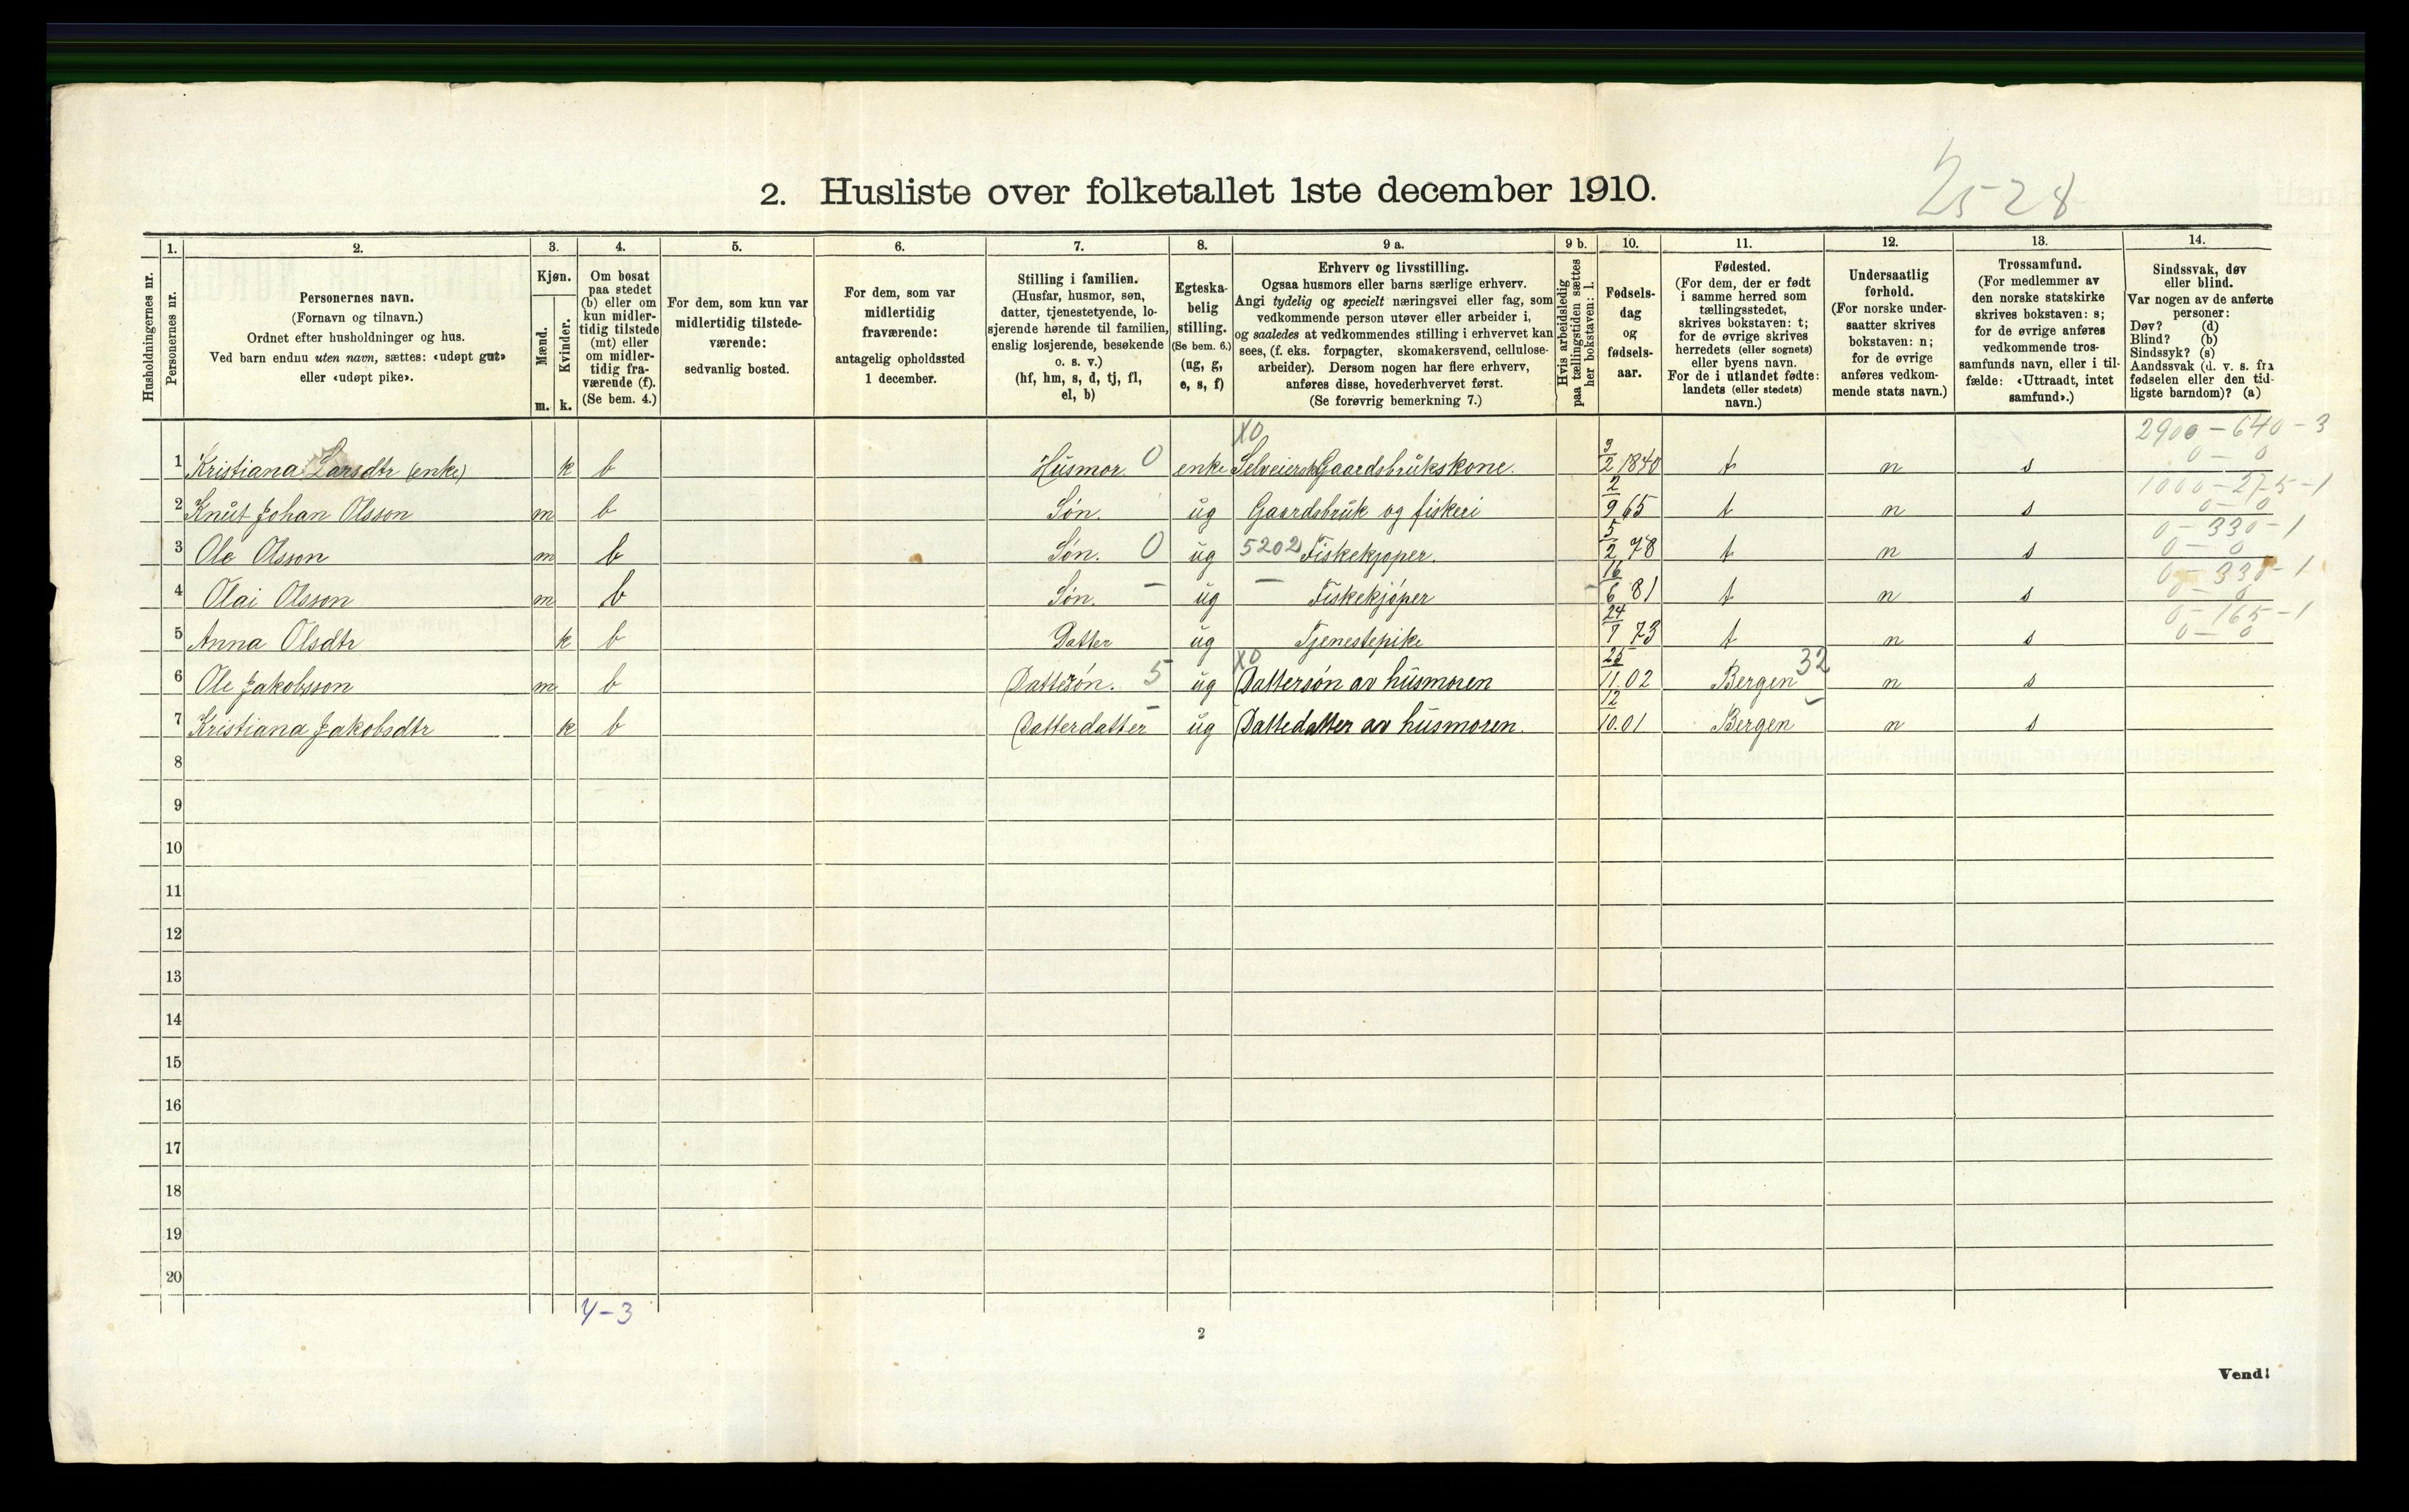 2. Husliste over folketallet 1ste december 1910.
2528
Husholdningernes nr.
1. Personernes nr.
2. Personernes navn. (Fornavn og tilnavn.) Ordnet efter husholdninger og hus. Ved barn endnu uten navn, sættes: «udøpt gut» eller «udøpt pike».
3. Kjøn. Mænd. m. Kvinder. k.
4. Om bosat paa stedet (b) eller om kun midler-tidig tilstede (mt) eller om midler-tidig fra-værende (f). (Se bem. 4.)
5. For dem, som kun var midlertidig tilstede-værende: sedvanlig bosted.
6. For dem, som var midlertidig fraværende: antagelig opholdssted 1 december.
7. Stilling i familien. (Husfar, husmor, søn, datter, tjenestetyende, lo-sjerende hørende til familien, enslig losjerende, besøkende o. s. v.) (hf, hm, s, d, tj, fl, el, b)
8. Egteska-belig stilling. (Se bem. 6.) (ug, g, e, s, f)
9 a. Erhverv og livsstilling. Ogsaa husmors eller barns særlige erhverv. Angi tydelig og specielt næringsvei eller fag, som vedkommende person utøver eller arbeider i, og saaledes at vedkommendes stilling i erhvervet kan sees, (f. eks. forpagter, skomakersvend, cellulose-arbeider). Dersom nogen har flere erhverv, anføres disse, hovederhvervet først. (Se forøvrig bemerkning 7.)
9 b. Hvis arbeidsledig paa tællingstiden sættes her bokstaven: l.
10. Fødsels-dag og fødsels-aar.
11. Fødested. (For dem, der er født i samme herred som tællingsstedet, skrives bokstaven: t; for de øvrige skrives herredets (eller sognets) eller byens navn. For de i utlandet fødte: landets (eller stedets) navn.)
12. Undersaatlig forhold. (For norske under-saatter skrives bokstaven: n; for de øvrige anføres vedkom-mende stats navn.)
13. Trossamfund. (For medlemmer av den norske statskirke skrives bokstaven: s; for de øvrige anføres vedkommende tros-samfunds navn, eller i til-fælde: «Uttraadt, intet samfund».)
14. Sindssvak, døv eller blind. Var nogen av de anførte personer: Døv? (d) Blind? (b) Sindssyk? (s) Aandssvak (d. v. s. fra fødselen eller den tid-ligste barndom)? (a)
X0 2900 - 640 - 3
1 Kristiana Larsdtr (enke) k b Husmor. 0 enke Selveiersk Gaardsbrukskone. 3/2 1840 t n s 0 - 0
2 Knut Johan Olsson m b Søn. ug Gaardsbruk og fiskeri 2/9 65 t n s 1000 - 275 - 1 0 - 0
3 Ole Olsson m b Søn. 0 ug 5202 Fiskekjøper. 5/2 78 t n s 0 - 330 - 1 0 - 0
4 Olai Olsson m b Søn. - ug - Fiskekjøper - 16/6 81 t n s 0 - 330 - 1 0 - 0
5 Anna Olsdtr k b Datter ug Tjenestepike 24/7 73 t n s 0 - 165 - 1 0 - 0
6 Ole Jakobsson m b Dattersøn. 5 ug X0 Dattersøn av husmoren 25/11.02 Bergen 32 n s
7 Kristiana Jakobsdtr k b Datterdatter - ug Dattedatter av husmoren. 12/10.01 Bergen - n s
8
9
10
11
12
13
14
15
16
17
18
19
20
4-3
2
Vend!